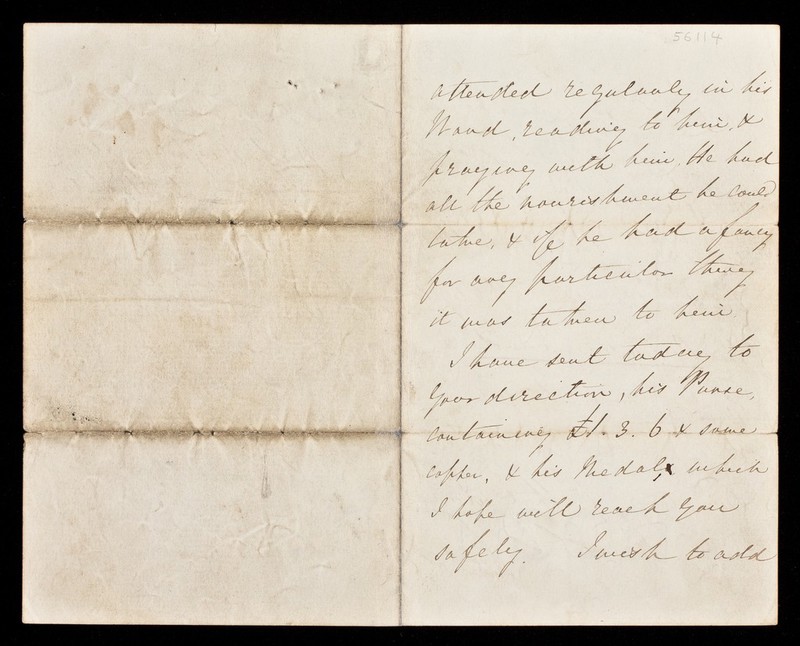 56114
attended regularly in his
Ward, reading to him, &
praying with him. He had
all the nourishment he could
take, & if he had a fancy
for any particular thing
it was taken to him
I have sent today to
your direction, his Purse,
containing £1. 3. 6 & some
copper, & his Medal, which
I hope will reach you
safely. I wish to add